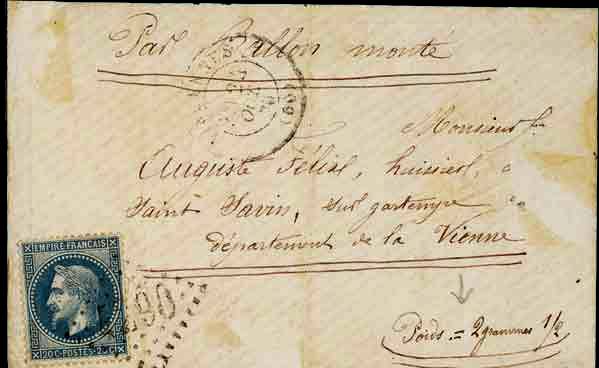 Par Ballon monté
(60)
Monsieur
Auguste Félix, huissier, à
Saint Savin, sur gartempe
département de la Vienne
Poids = 2 grammes 1/2
EMPIRE FRANÇAIS
20 C POSTES 20 C